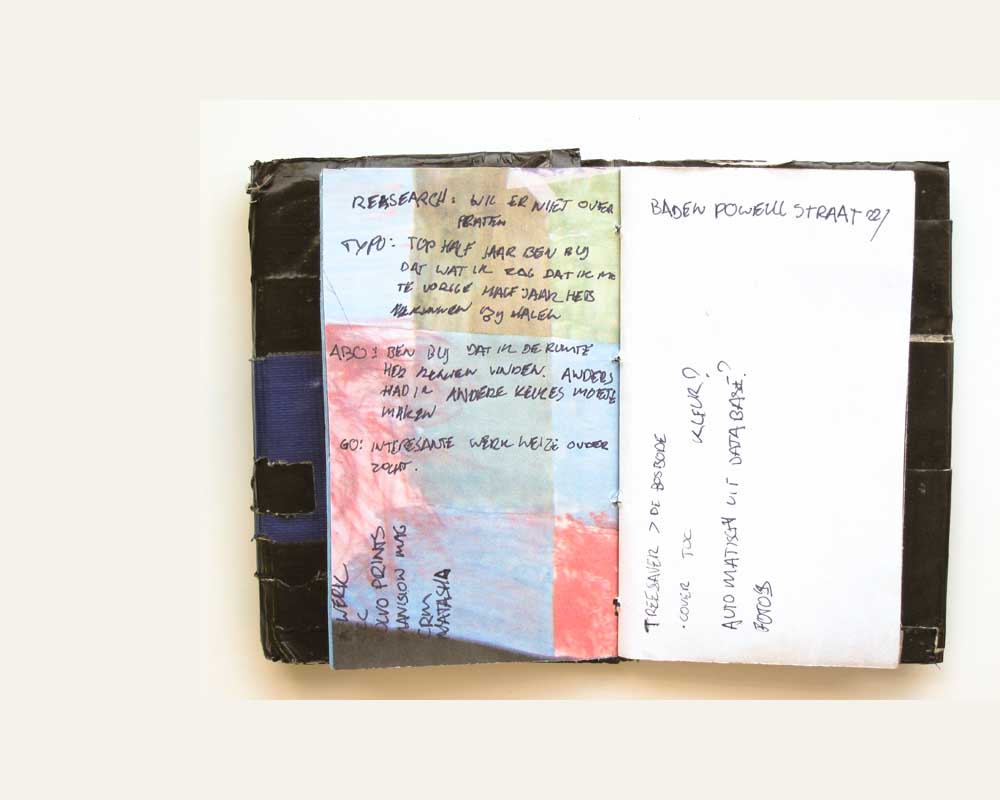 REASEARCH: WIL ER NIET OVER
PRATEN
TYPO: TOP HALF JAAR BEN BLIJ
DAT WAT IK ZAG DAT IK MIS
TE VORIGE HALF JAAR HEB
KUNNEN BIJ HALEN
ABO: BEN BLIJ DAT IK DE RUIMTE
HEB KUNNEN VINDEN. ANDERS
HAD IK ANDERE KEUZES MOETE
MAKEN
GO: INTERESANTE WERK WEIZE ONDER
ZOCHT.
WERK
PRINTS
MAG
NATASHA
BADEN POWELL STRAAT 22/
TREESAVER > DE BOSBODE
• COVER TOC KLEUR?
AUTOMATISCH UIT DATABASE?
FOTOS